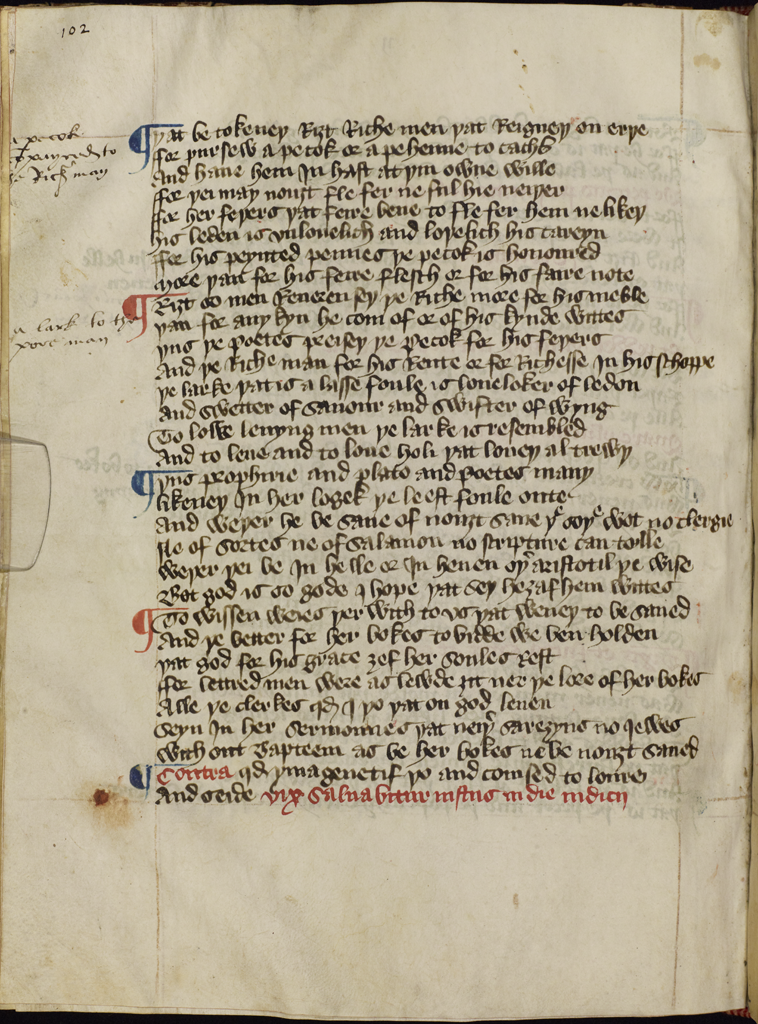 102
a pecok
compayred to
ye Rich man
¶ yat be tokeney Riȝt Riche men yat Reigney on erye
ffor pursew a pecok or a pehenne to cache
And haue hem In hast at yin owne wille
ffor yei may nouȝt fle fer ne ful hie neiyer
ffor her feyers yat feire bene to fle fer hem ne likey
his leden is vnlouelich and loyelich his careyn
ffor his peynted pennes ye pecok is honoured
More yan for his feire flesch or for his faire note
a lark to the
pore man
¶ Riȝt so men Reuerensey ye Riche more for his meble
yan for any kyn he com of or of his kynde wittes
yus ye poetes preisey ye Pecok for his feyers
And ye Riche man for his Rente or for Richesse In his schoppe
ye larke yat is a lasse foule is loueloker of ledon
And swetter of sauour and swifter of wyng
To lowe leuyng men ye larke is resembled
And to leue and to loue holi yat louey al trewy
¶ yus prophirie and plato and poetes many
likeney In her logek ye leest foule oute
And weyer he be saue of nouȝt saue ye soye wot no clergie
Ne of sortes ne of salamon no scripture can telle
Weyer yei be In helle or In heuen oyer aristotil ye wise
Bot god is so gode I hope yat sey he ȝaf hem wittes
¶ To wissen weies yer with to vs yat weney to be saued
And ye better for her bokes to bidde we ben holden
yat god for his grace ȝef her soules rest
ffor lettred men were as lewde ȝit ner ye lore of her bokes
Alle ye clerkes qd I yo yat on god leuen
Seyn In her sermounes yat neiyer sareȝyns no Jewes
With out bapteem as be her bokes ne be nouȝt saued
¶ Contra qd ymagenetif yo and comsed to loure
And seide vix saluabitur iustus in die iudicij